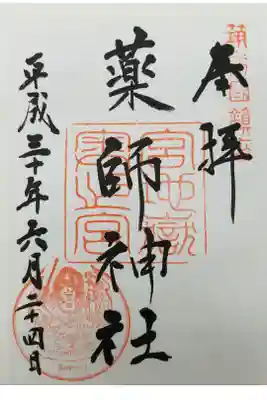 奉拝
薬師神社
平成三十年六月二十四日
宮地嶽